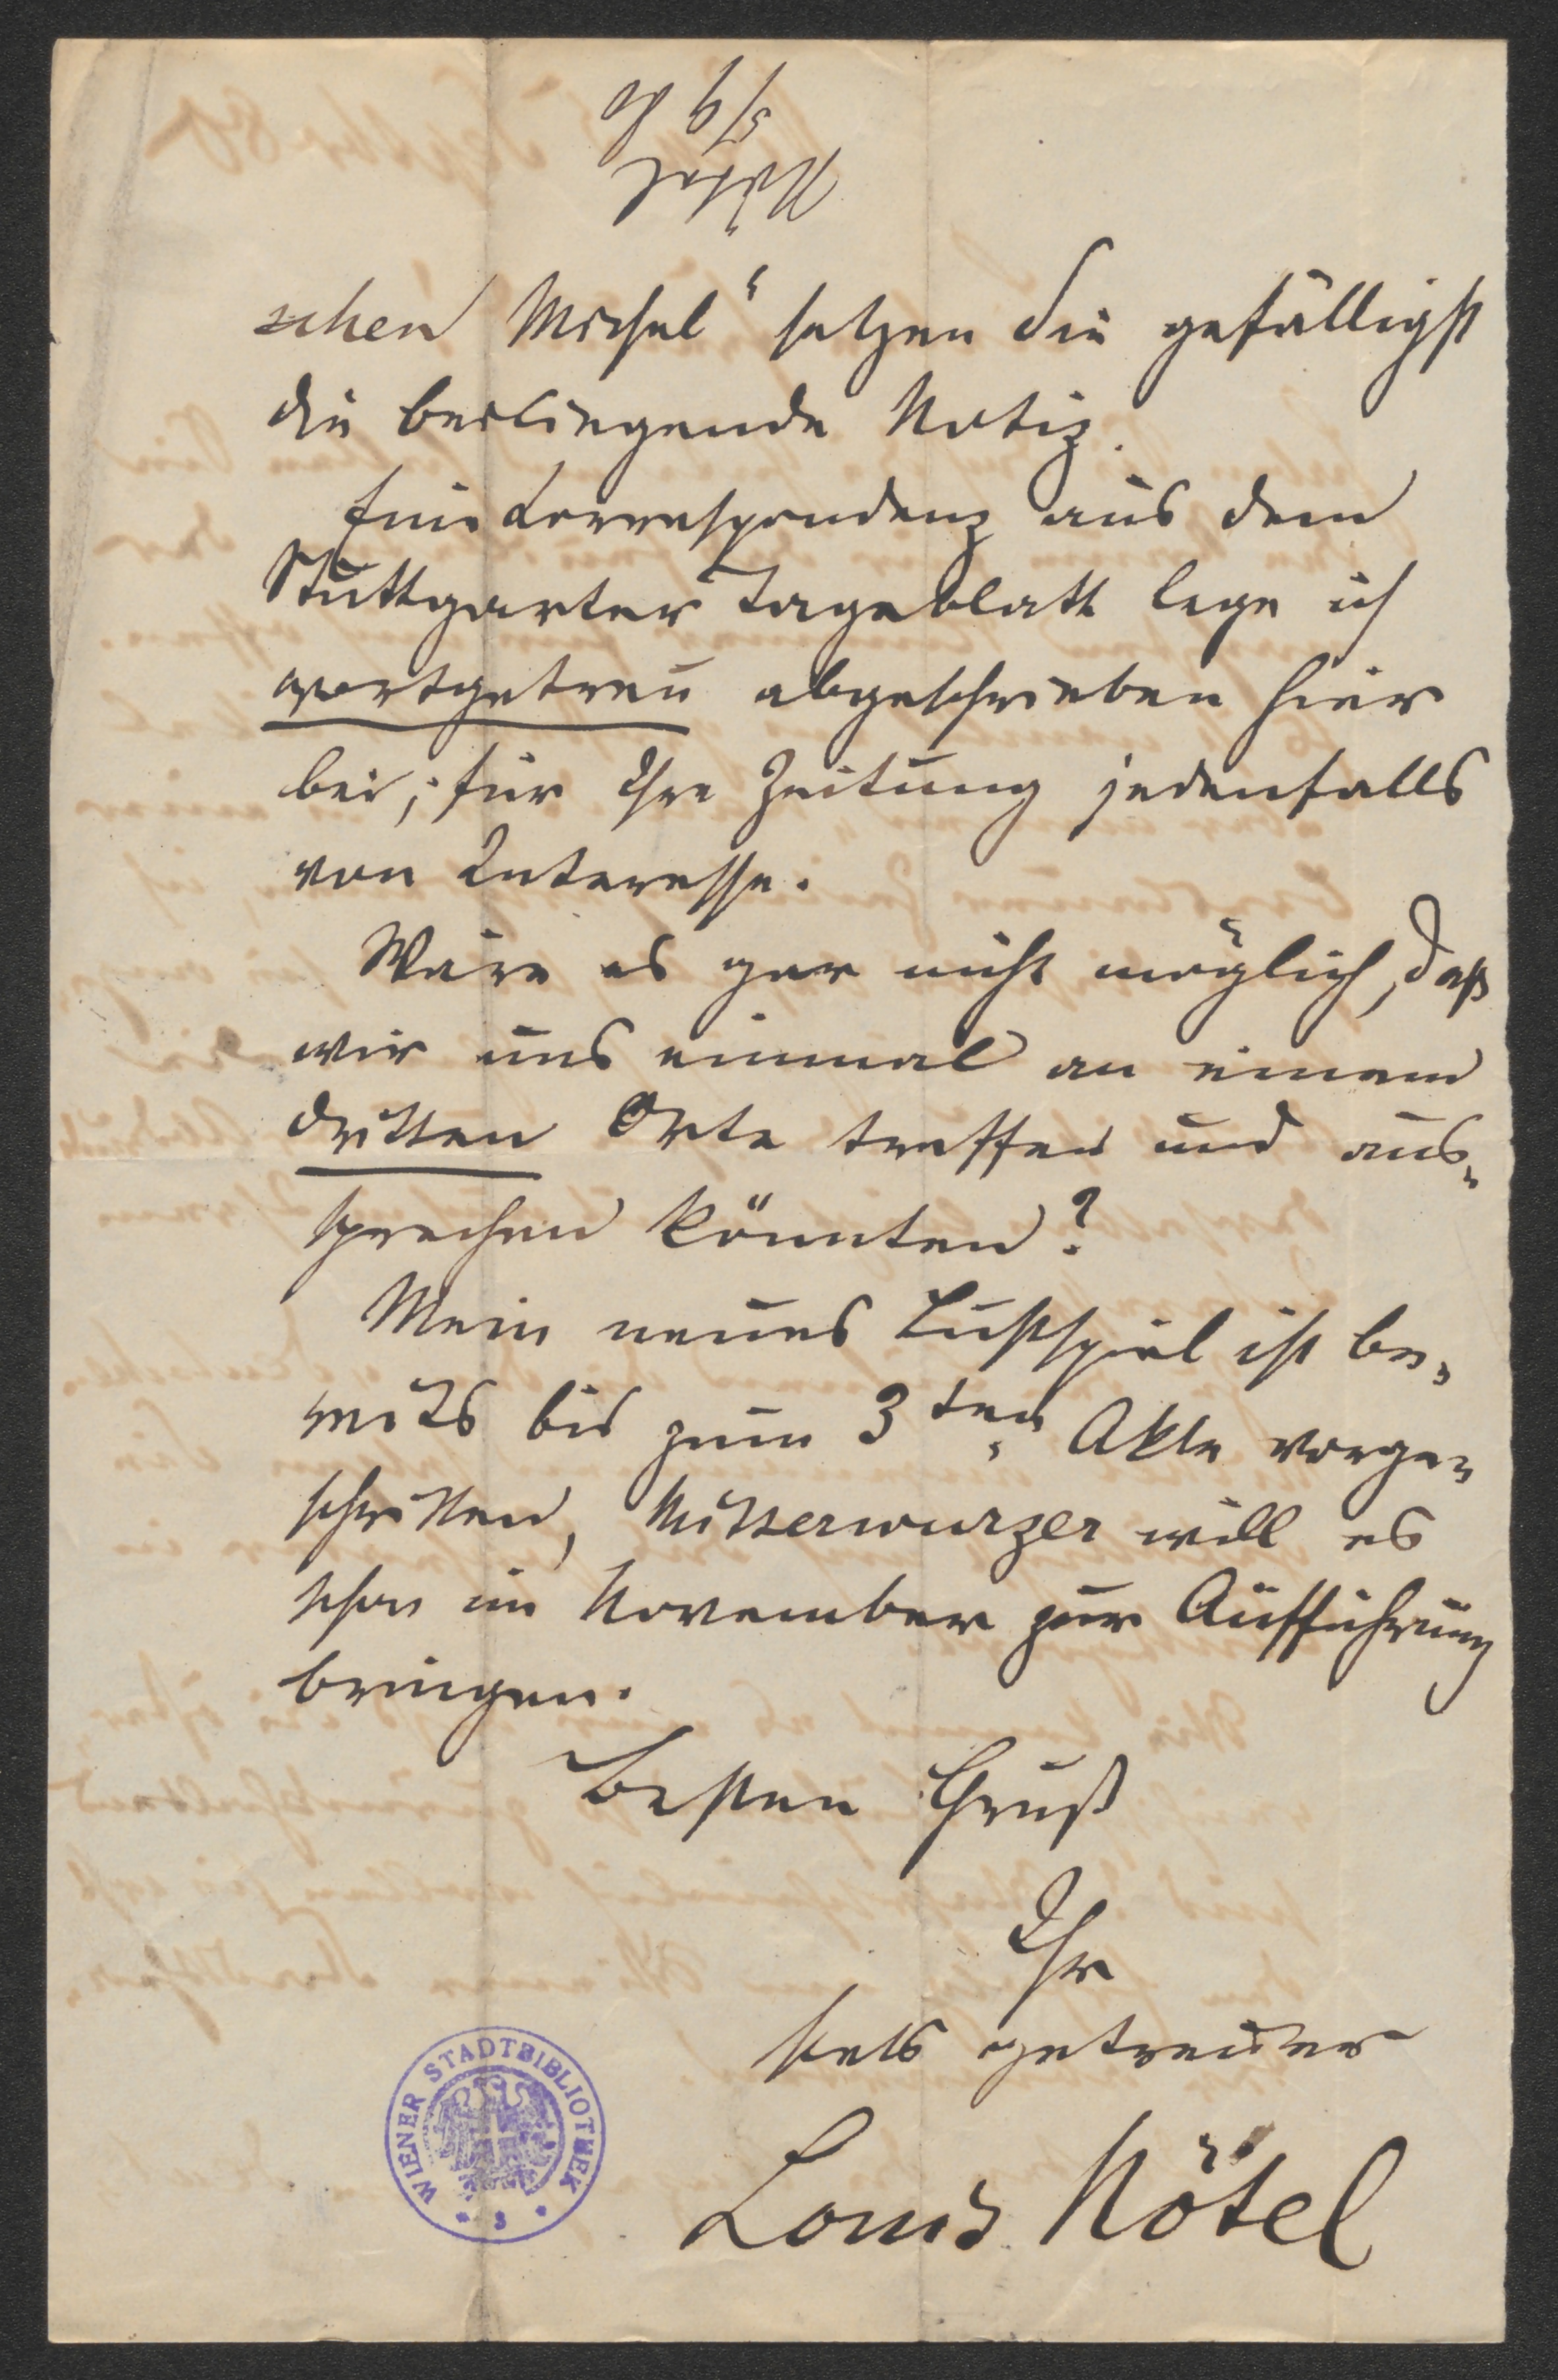 Nötel
5/9 80
schen Michel" setzen Sie gefälligst
die beiliegende Notiz.
Eine Correspondenz aus dem
Stuttgarter Tageblatt lege ich
wortgetreu abgeschrieben hier
bei; für Ihre Zeitung jedenfalls
von Interesse.
Wäre es gar nicht möglich, daß
wir uns einmal an einem
dritten Orte treffen und aus-
sprechen könnten?
Mein neues Lustspiel ist be-
reits bis zum 3ten Akte vorge-
schritten, Mitterwurzer will es
schon im November zur Aufführung
bringen.
Besten Gruß
Ihr
stets getreuer
Louis Nötel
WIENER STADTBIBLIOTHEK